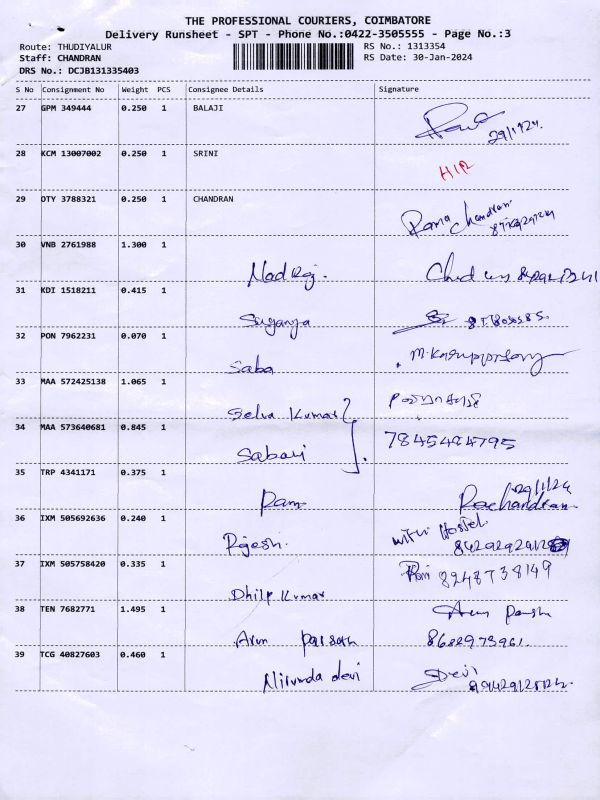 THE PROFESSIONAL COURIERS, COIMBATORE
Delivery Runsheet - SPT - Phone No.:0422-3505555 - Page No.:3
Route: THUDIYALUR RS No.: 1313354
Staff: CHANDRAN RS Date: 30-Jan-2024
DRS No.: DCJB131335403
S No Consignment No Weight PCS Consignee Details Signature
27 GPM 349444 0.250 1 BALAJI
29/1/24.
28 KCM 13007002 0.250 1 SRINI
29 OTY 3788321 0.250 1 CHANDRAN
Rama Chandran
30 VNB 2761988 1.300 1
31 KDI 1518211 0.415 1
Suganya
32 PON 7962231 0.070 1
Saba
33 MAA 572425138 1.065 1
Selva Kumar
34 MAA 573640681 0.845 1 7845494795
Sabari
35 TRP 4341171 0.375 1
29/1/24
Ram
36 IXM 505692636 0.240 1
Hostel
37 IXM 505758420 0.335 1
8248738149
Dhilp Kumar
38 TEN 7682771 1.495 1
Arun
39 TCG 40827603 0.460 1
devi Devi